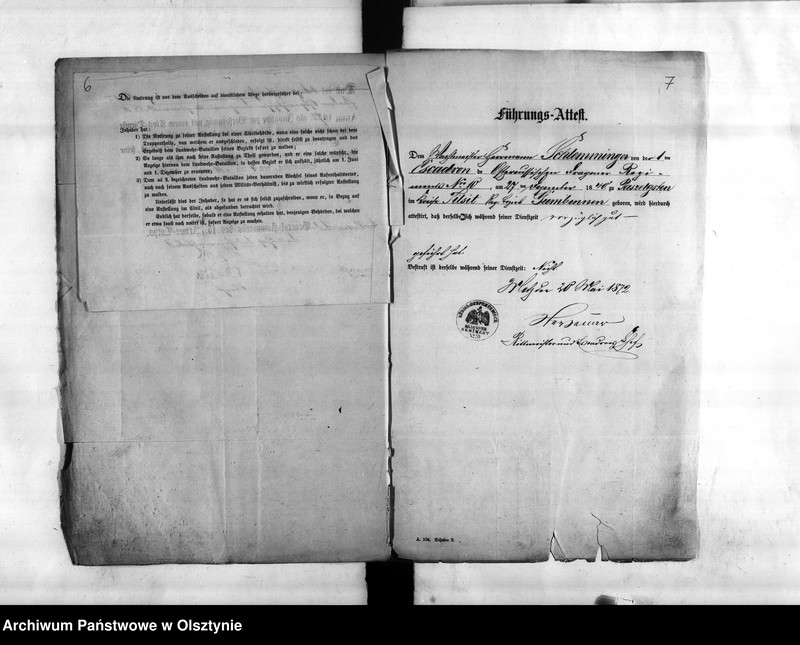 6
Die Notirung ist vor dem Ausscheiden auf dienstlichem Wege herbeigeführt bei:
Inhaber hat:
1) Die Notirung zu seiner Anstellung bei einer Civilbehörde, wenn eine solche nicht schon bei dem
Truppentheile, von welchem er ausgeschieden, erfolgt ist, direkt selbst zu beantragen und das
Ergebniß dem Landwehr-Bataillon seines Bezirks sofort zu melden;
2) So lange als ihm noch keine Anstellung zu Theil geworden, und er eine solche wünscht, die
Anzeige hiervon dem Landwehr-Bataillon, in dessen Bezirk er sich aufhält, jährlich am 1. Juni
und 1. Dezember zu erneuern;
3) Dem ad 2. bezeichneten Landwehr-Bataillon jeden dauernden Wechsel seines Aufenthaltsortes,
auch nach seinem Ausscheiden aus jedem Militair-Verhältniß, bis zu wirklich erfolgter Anstellung
zu melden.
Unterläßt dies der Inhaber, so hat er es sich selbst zuzuschreiben, wenn er, in Bezug auf
eine Anstellung im Civil, als abgefunden betrachtet wird.
Endlich hat derselbe, sobald er eine Anstellung erhalten hat, denjenigen Behörden, bei welchen
er etwa sonst noch notirt ist, sofort Anzeige zu machen.
7
Führungs-Attest.
Dem Wachtmeister Herrmann Schlemminger von der 1ten
Escadron des Ostpreußischen Dragoner Regi-
ments No 10, am 27ten 18
im Kreise Tilsit Reg. Bezirk Gumbinnen geboren, wird hierdurch
attestirt, daß derselbe sich während seiner Dienstzeit vorzüglich gut
geführt hat.
Bestraft ist derselbe während seiner Dienstzeit: Nicht.
Metz den 28 Mai 1872
Rittmeister und Escadron Chef
DRAGONER
REGIMENT
A. 104. Schema 2.
Archiwum Państwowe w Olsztynie